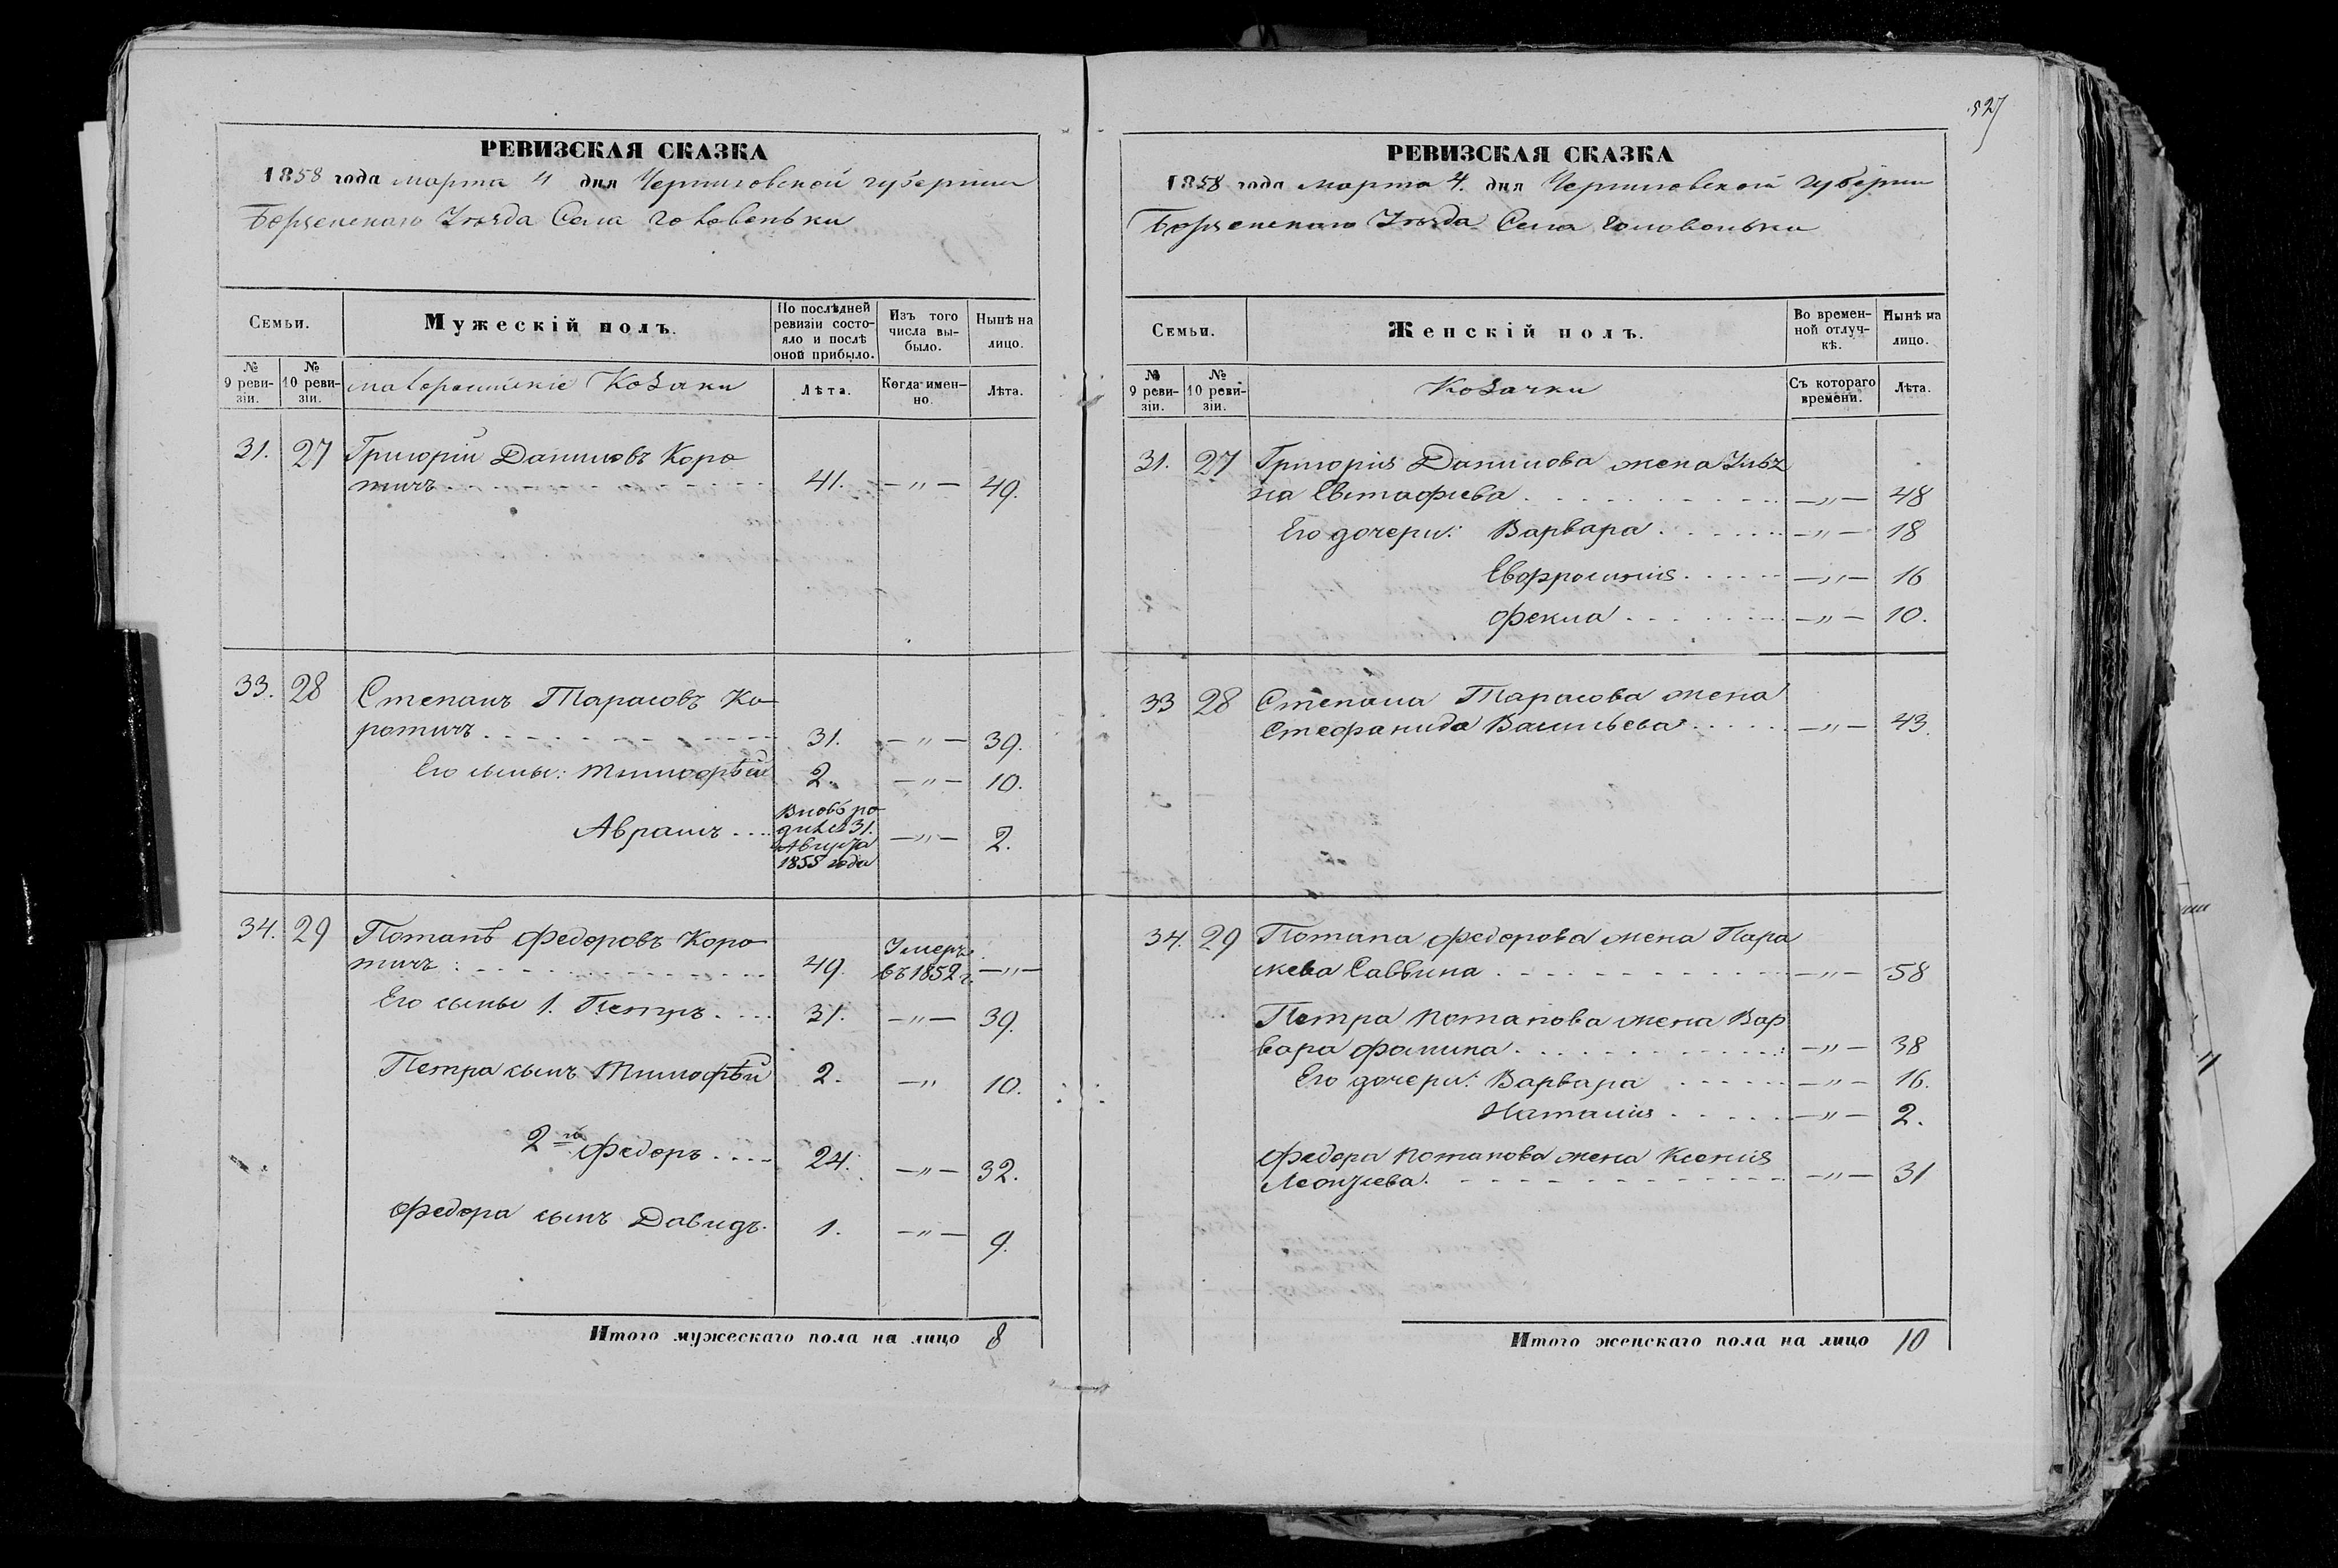 527
РЕВИЗСКАЯ СКАЗКА
1858 года марта 4 дня Черниговской губернии
Борзенскаго Уѣзда Села Головеньки
Семьи.
Мужескій полъ.
По послѣдней ревизіи состояло и послѣ оной прибыло.
Изъ того числа выбыло.
Нынѣ на лицо.
№ 9 ревизіи.
№ 10 ревизіи.
малороссійскіе Козаки
Лѣта.
Когда именно.
Лѣта.
31. 27 Григорій Даниловъ Коро
тичъ 41. —"— 49.
33. 28 Степанъ Тарасовъ Ко
ротичъ 31. —"— 39.
Его сыны: Тимофѣй 2. —"— 10.
Абрамъ Вновь ро
дился 31.
Августа
1855 года —"— 2.
34. 29 Потапъ Федоровъ Коро
тичъ 49. Умеръ
въ 1852 г. —"—
Его сыны 1. Петръ 31. —"— 39.
Петра сынъ Тимофѣй 2. —" 10.
2й Федоръ 24. —"— 32.
Федора сынъ Давидъ. 1. —"— 9.
Итого мужескаго пола на лицо 8
РЕВИЗСКАЯ СКАЗКА
1858 года марта 4. дня Черниговской губерніи
Борзенскаго Уѣзда Села Головеньки
Семьи.
Женскій полъ.
Во временной отлучкѣ.
Нынѣ на лицо.
№ 9 ревизіи.
№ 10 ревизіи.
Козачки
Съ котораго времени.
Лѣта.
31. 27 Григорія Данилова жена
Евстафіева —"— 48
Его дочери: Варвара —"— 18
Евфросинія —"— 16
Фекла —"— 10.
33 28 Степана Тарасова жена
Стефанида Васильева —"— 43.
34. 29 Потапа Федорова жена Пара
скева Саввина —"— 58
Петра Потапова жена Вар
вара Фомина —"— 38
Его дочери: Варвара —"— 16.
Наталия —"— 2.
Федора Потапова жена Ксенія
Леонтіева. —"— 31
Итого женскаго пола на лицо 10